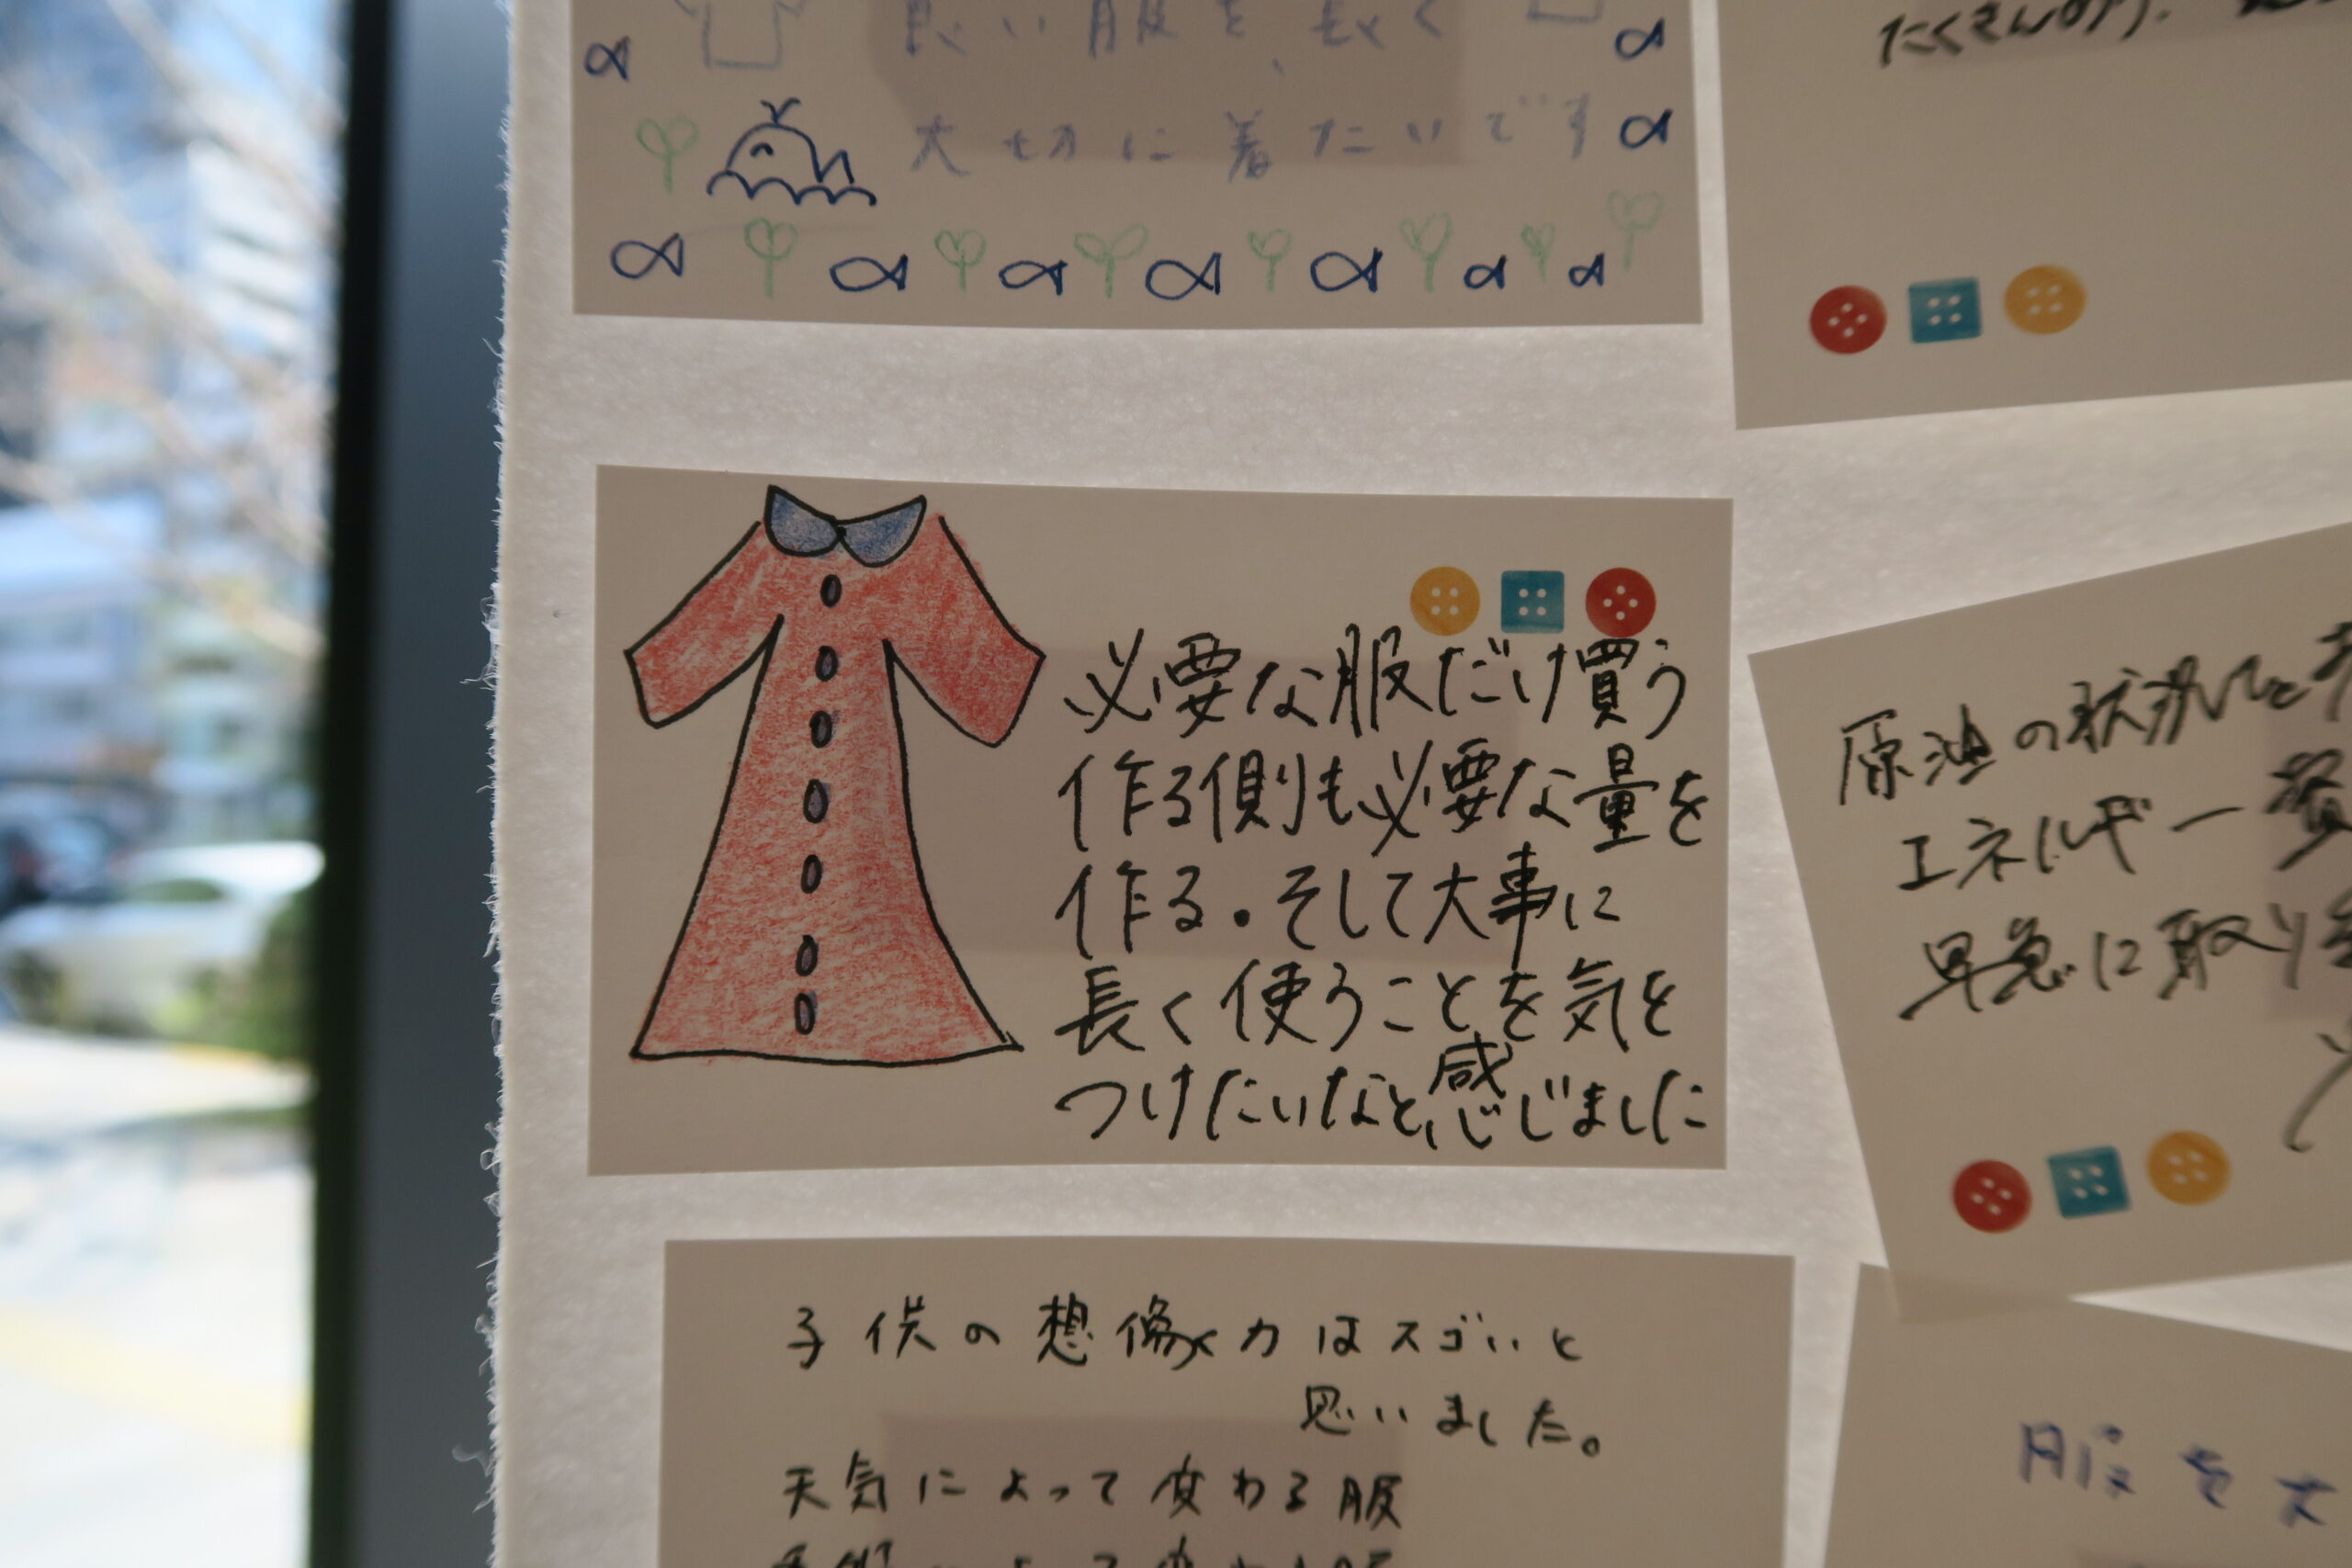 良い服を、長く
大切に着たいです
たくさんの
必要な服だけ買う
作る側も必要な量を
作る。そして大事に
長く使うことを気を
つけたいなと、感じました
原油の状況
エネルギー
早急に取り
子供の想像力はスゴいと
思いました。
天気によって変わる服
服を大